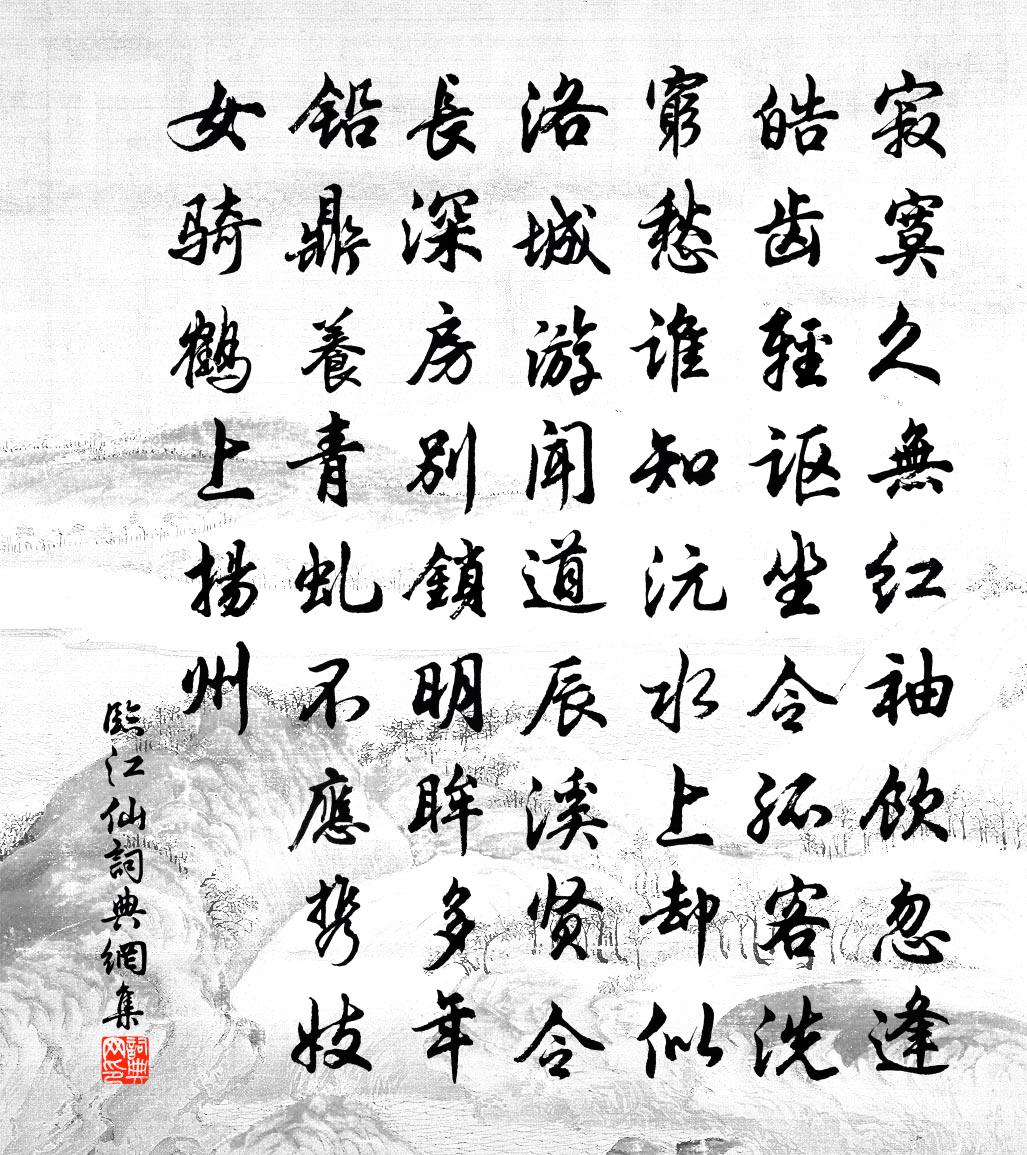 寂寞久無红袖飲忽逢
皓齿輕讴坐令孤客洗
窮愁谁知沅水上却似
洛城游闻道辰溪贤令
長深房别鎖明眸多年
铅鼎養青虬不應携妓
女骑鹤上揚州
臨江仙詞典網集
詞典网印